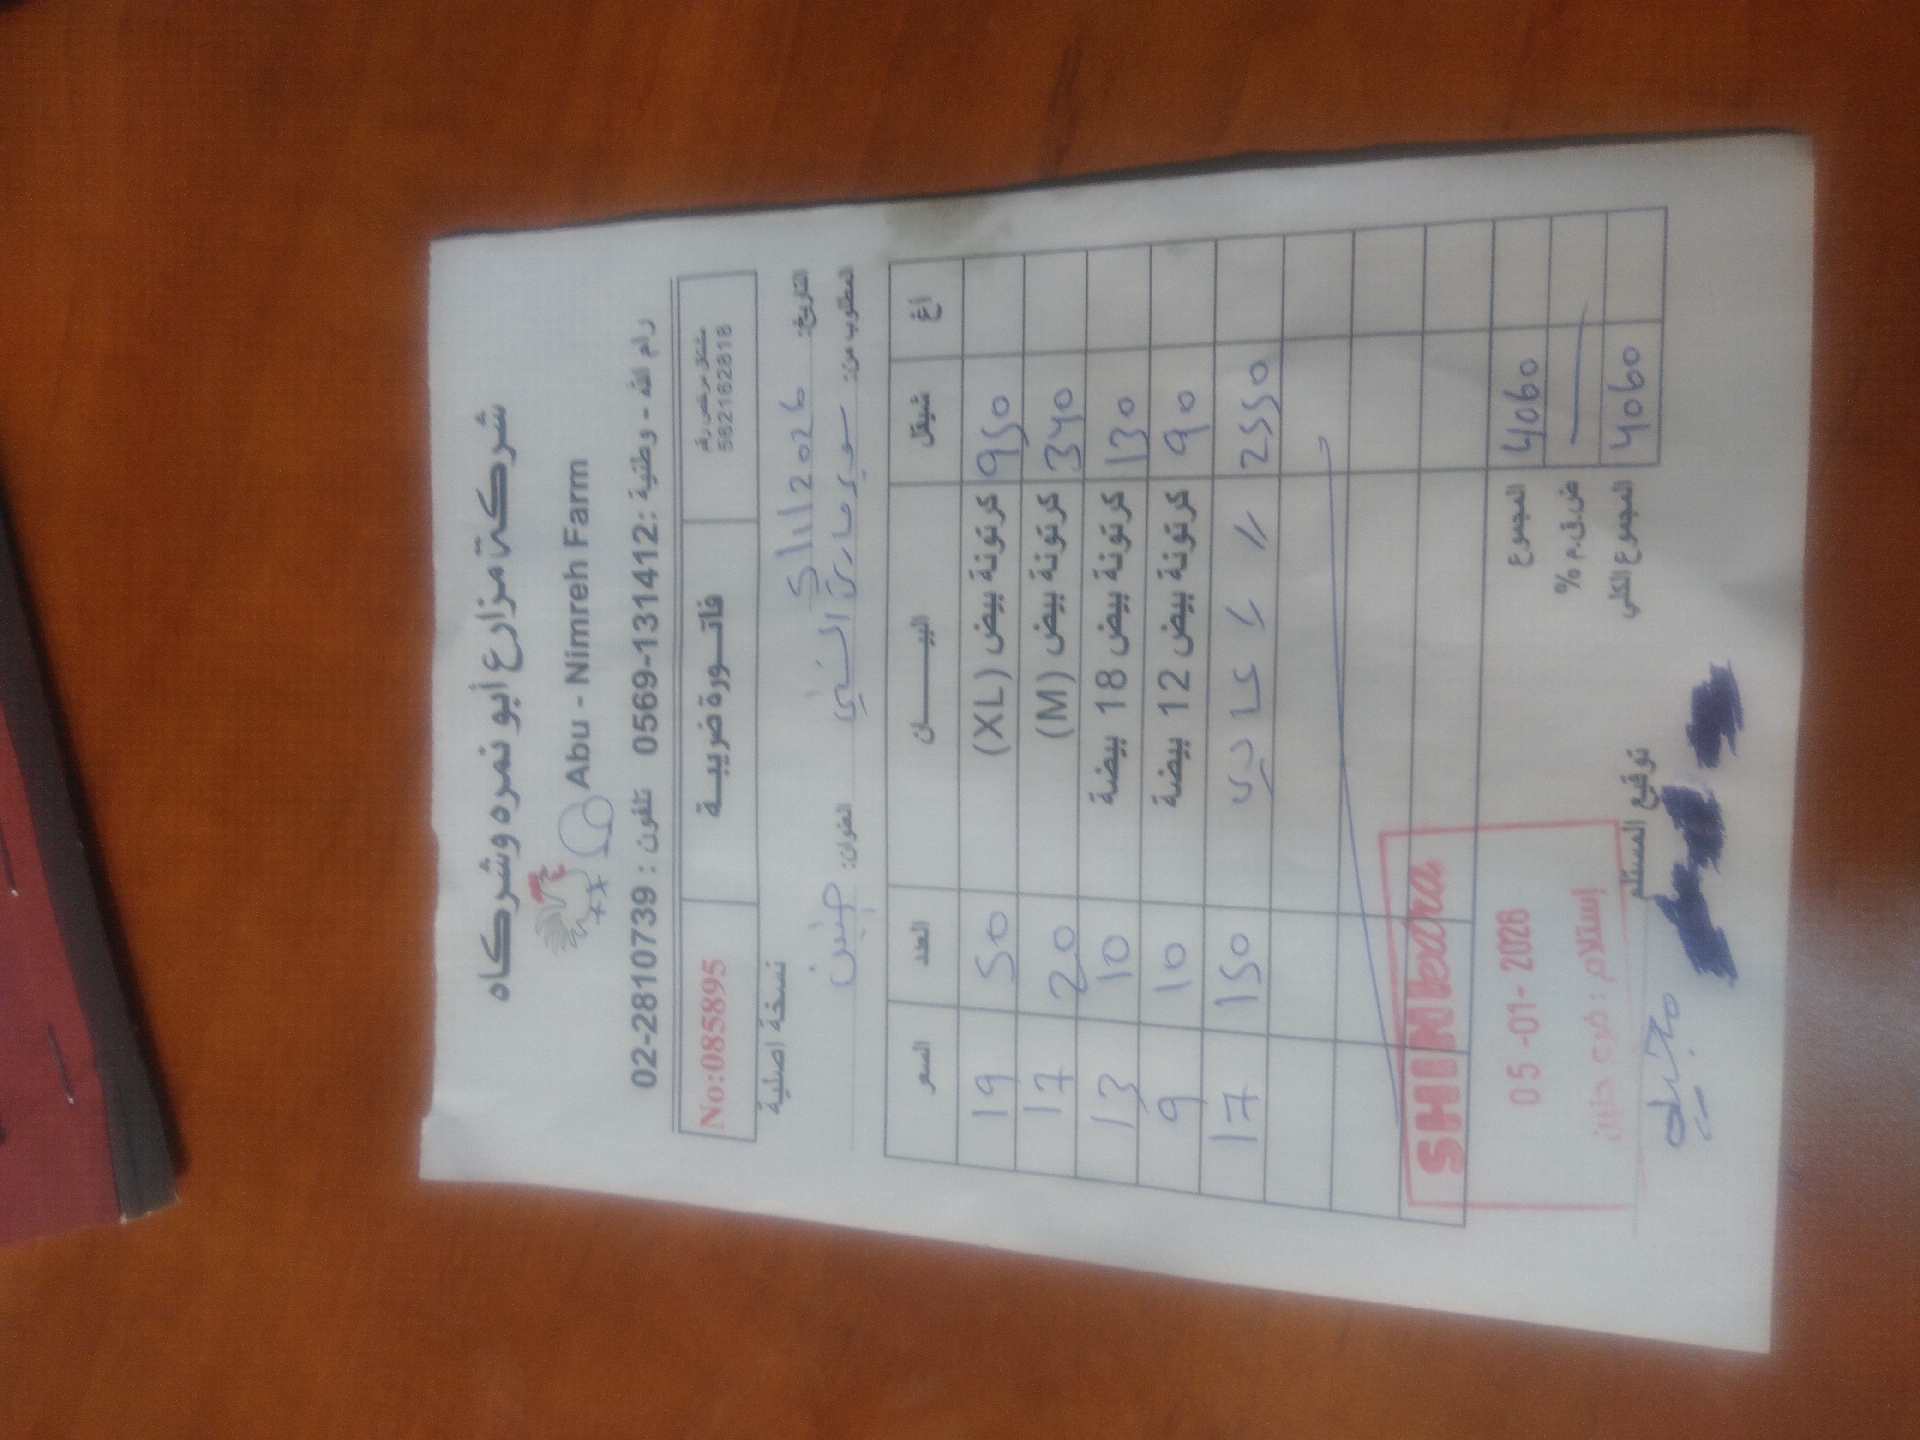 شركة مزارع أبو نمره وشركاه
Abu - Nimreh Farm
رام الله - وطنية : 0569-131412 تلفون : 02-2810739
مشتغل مرخص رقم
562162818
فاتورة ضريبية
No:085895
نسخة اصلية
التاريخ: 5/1/2026
المطلوب من: سوبر ماركت الشني العنوان: جنين
أغ شيقل البيان العدد السعر
950 كرتونة بيض (XL) 50 19
340 كرتونة بيض (M) 20 17
130 كرتونة بيض 18 بيضة 10 13
90 كرتونة بيض 12 بيضة 10 9
2550 // عادي 150 17
4060 المجموع
ض.ق.م %
4060 المجموع الكلي
توقيع المستلم
SHINI extra
05-01-2026
إستلام : فرع جنين